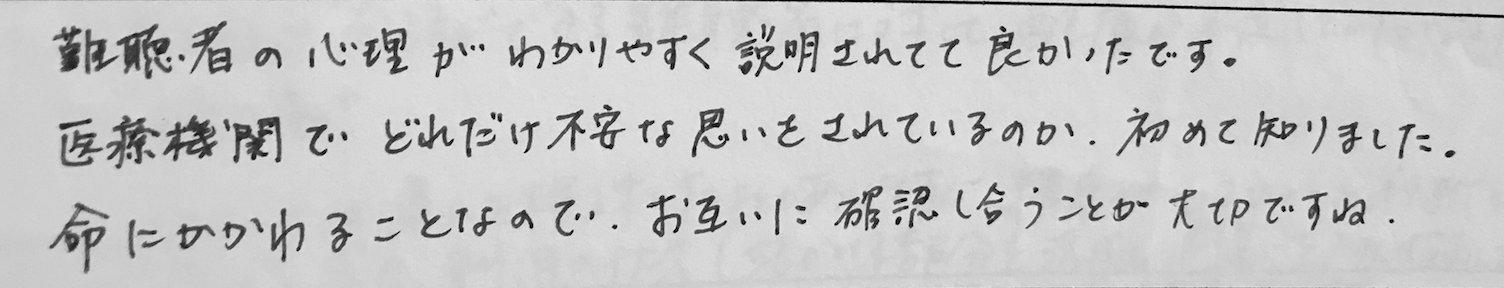 難聴者の心理がわかりやすく説明されてて良かったです。
医療機関でどれだけ不安な思いをされているのか、初めて知りました。
命にかかわることなので、お互いに確認し合うことが大切ですね。